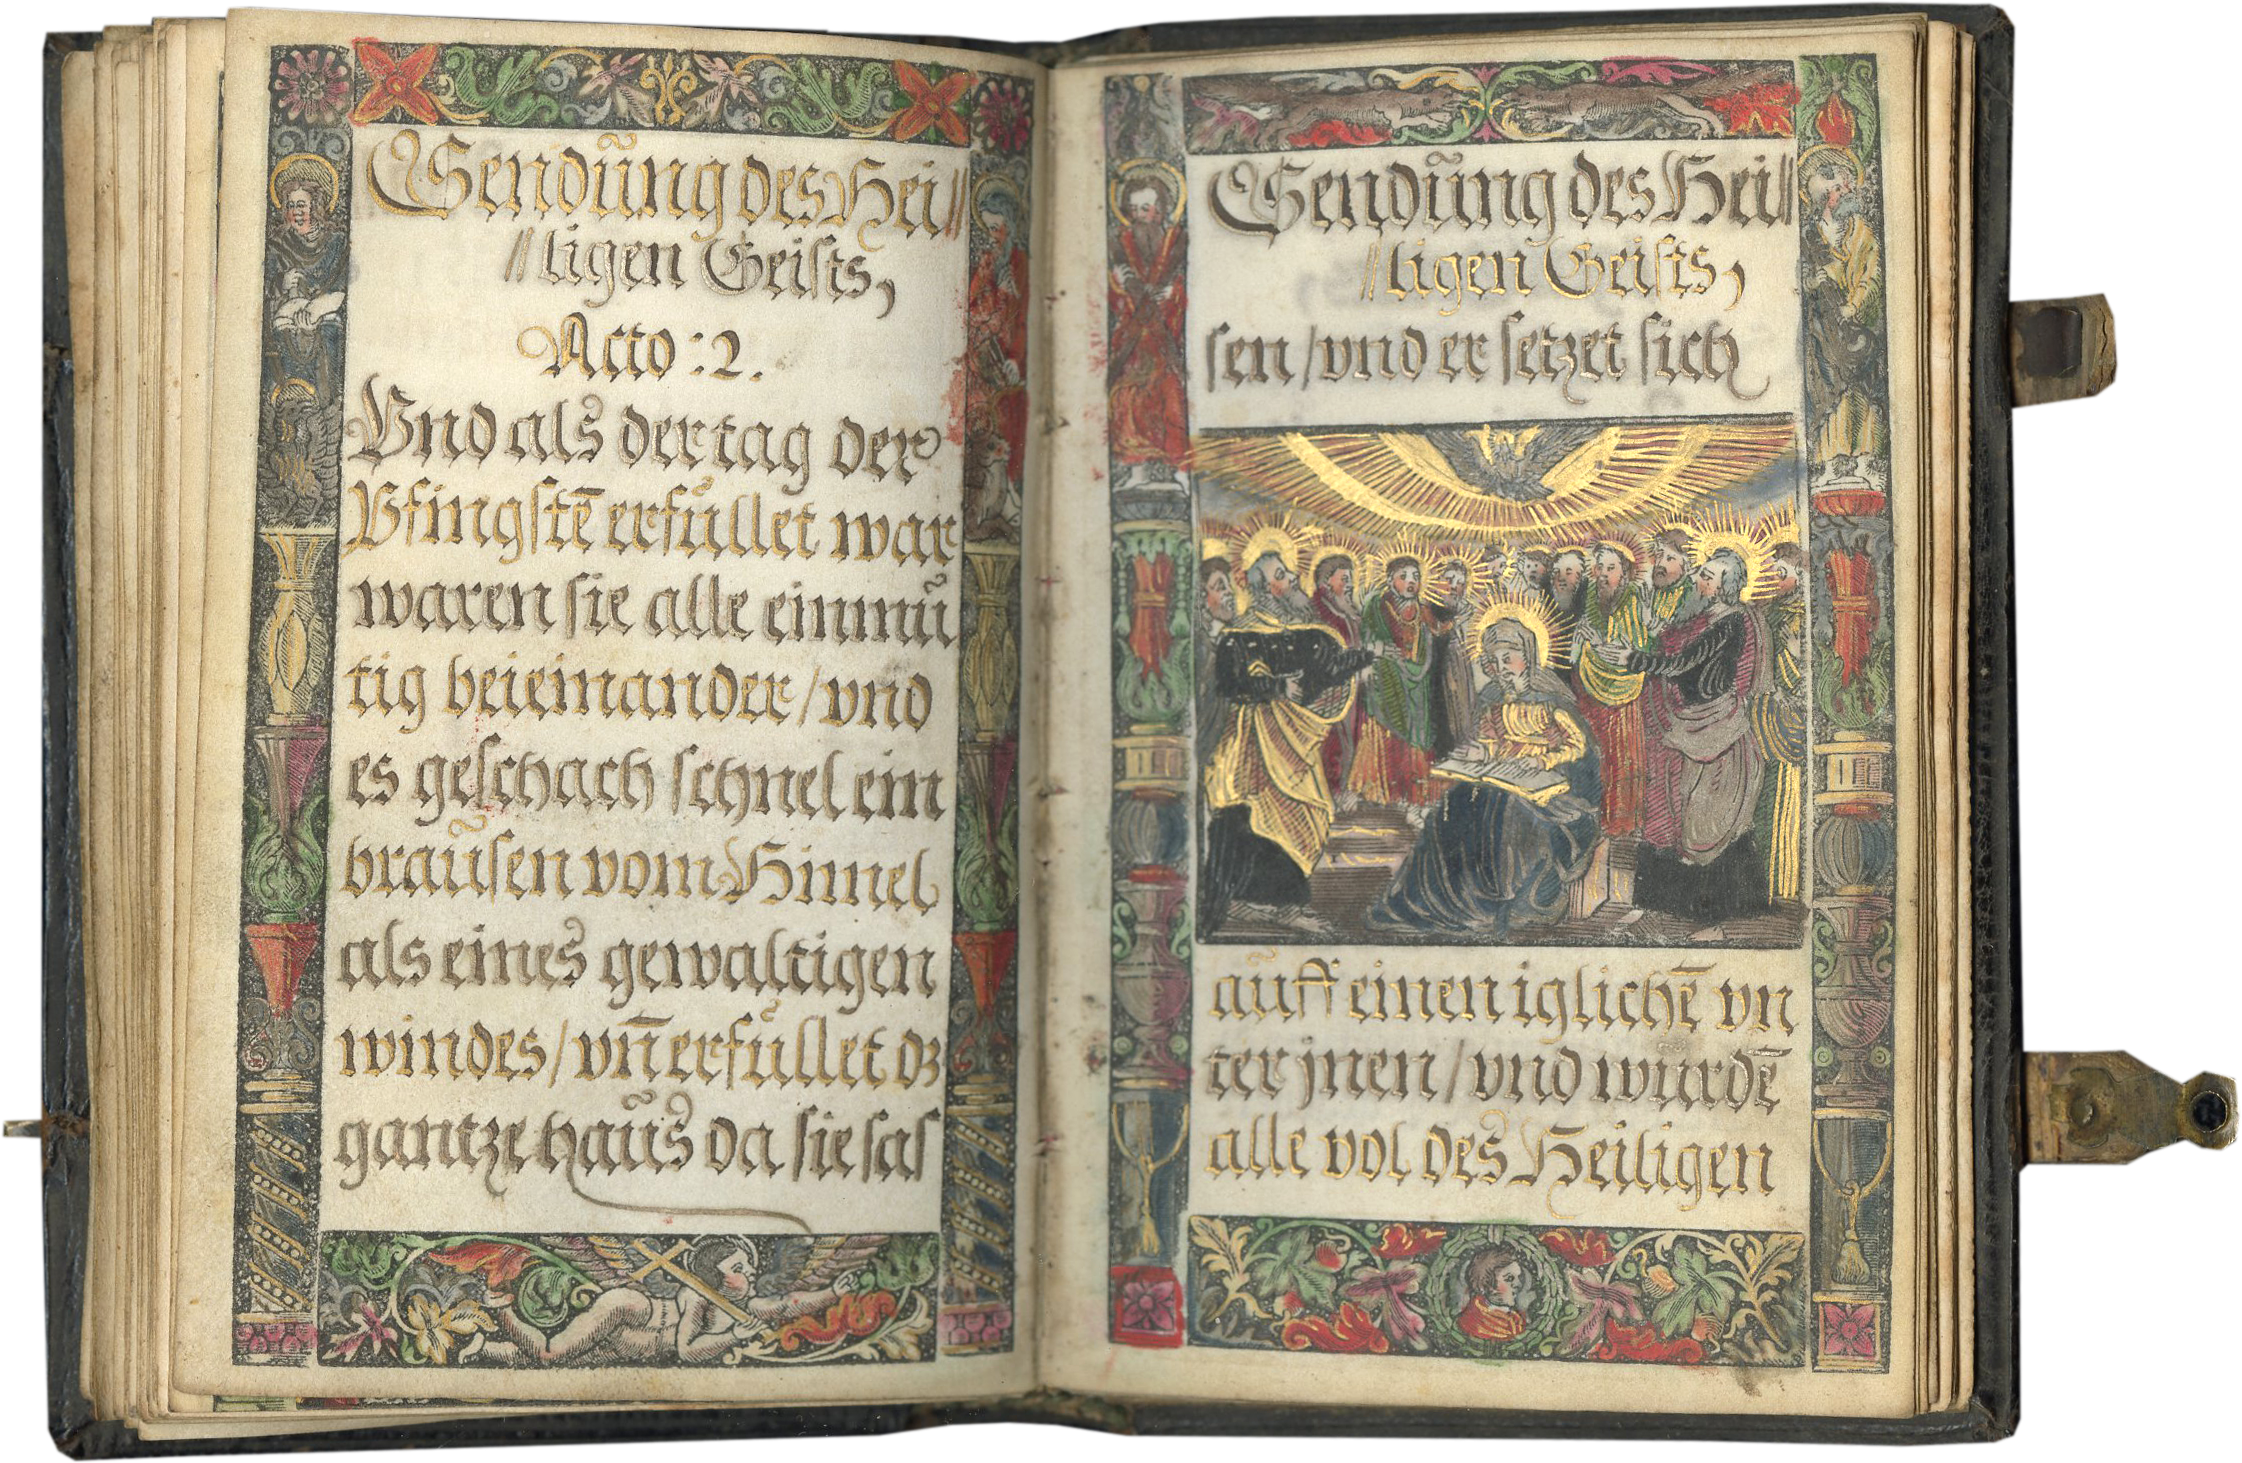 Sendũng des Hei⸗
⸗ligen Geists,
Acto: 2.
Vnd als der tag der
Pfingstē erfüllet war
waren sie alle einmü
tig beieinander/vnd
es geschach schnel ein
braũsen vom Himel
als eines gewaltigen
windes/vn̄ erfüllet dz
gantze haũs da sie sas
Sendũng des Hei⸗
⸗ligen Geists,
sen/vnd er setzet sich
aũff einen iglichē vn
ter jnen/vnd wurdē
alle vol des Heiligen